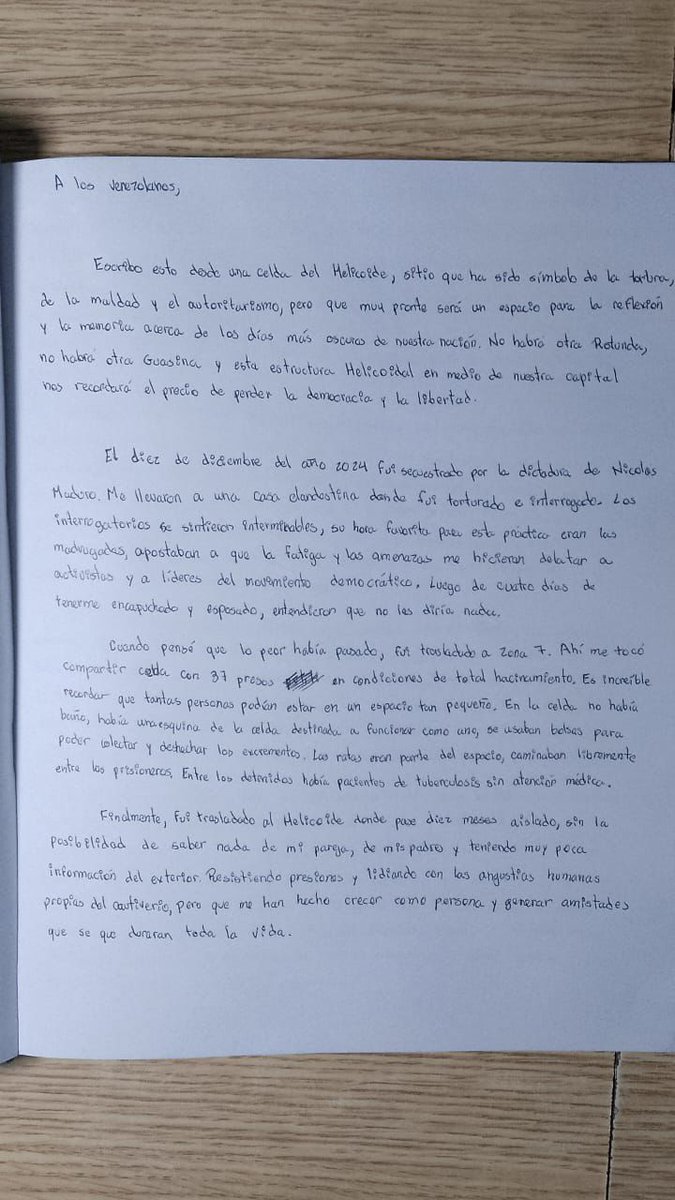 A los venezolanos,
Escribo esto desde una celda del Helicoide, sitio que ha sido símbolo de la tortura,
de la maldad y el autoritarismo, pero que muy pronto será un espacio para la reflexión
y la memoria acerca de los días más oscuros de nuestra nación. No habrá otra Rotunda,
no habrá otra Guasina y esta estructura Helicoidal en medio de nuestra capital
nos recordará el precio de perder la democracia y la libertad.
El diez de diciembre del año 2024 fui secuestrado por la dictadura de Nicolás
Maduro. Me llevaron a una casa clandestina donde fui torturado e interrogado. Los
interrogatorios se sintieron interminables, su hora favorita para esta práctica eran las
madrugadas, apostaban a que la fatiga y las amenazas me hicieran delatar a
activistas y a líderes del movimiento democrático. Luego de cuatro días de
tenerme encapuchado y esposado, entendieron que no les diría nada.
Cuando pensé que lo peor había pasado, fui trasladado a zona 7. Ahí me tocó
compartir celda con 37 presos en condiciones de total hacinamiento. Es increíble
recordar que tantas personas podían estar en un espacio tan pequeño. En la celda no había
baño, había una esquina de la celda destinada a funcionar como uno, se usaban bolsas para
poder colectar y deshechar los excrementos. Las ratas eran parte del espacio, caminaban libremente
entre los prisioneros. Entre los detenidos había pacientes de tuberculosis sin atención médica.
Finalmente, fui trasladado al Helicoide donde pase diez meses aislado, sin la
posibilidad de saber nada de mi pareja, de mis padres y teniendo muy poca
información del exterior. Resistiendo presiones y lidiando con las angustias humanas
propias del cautiverio, pero que me han hecho crecer como persona y generar amistades
que se que duraran toda la vida.